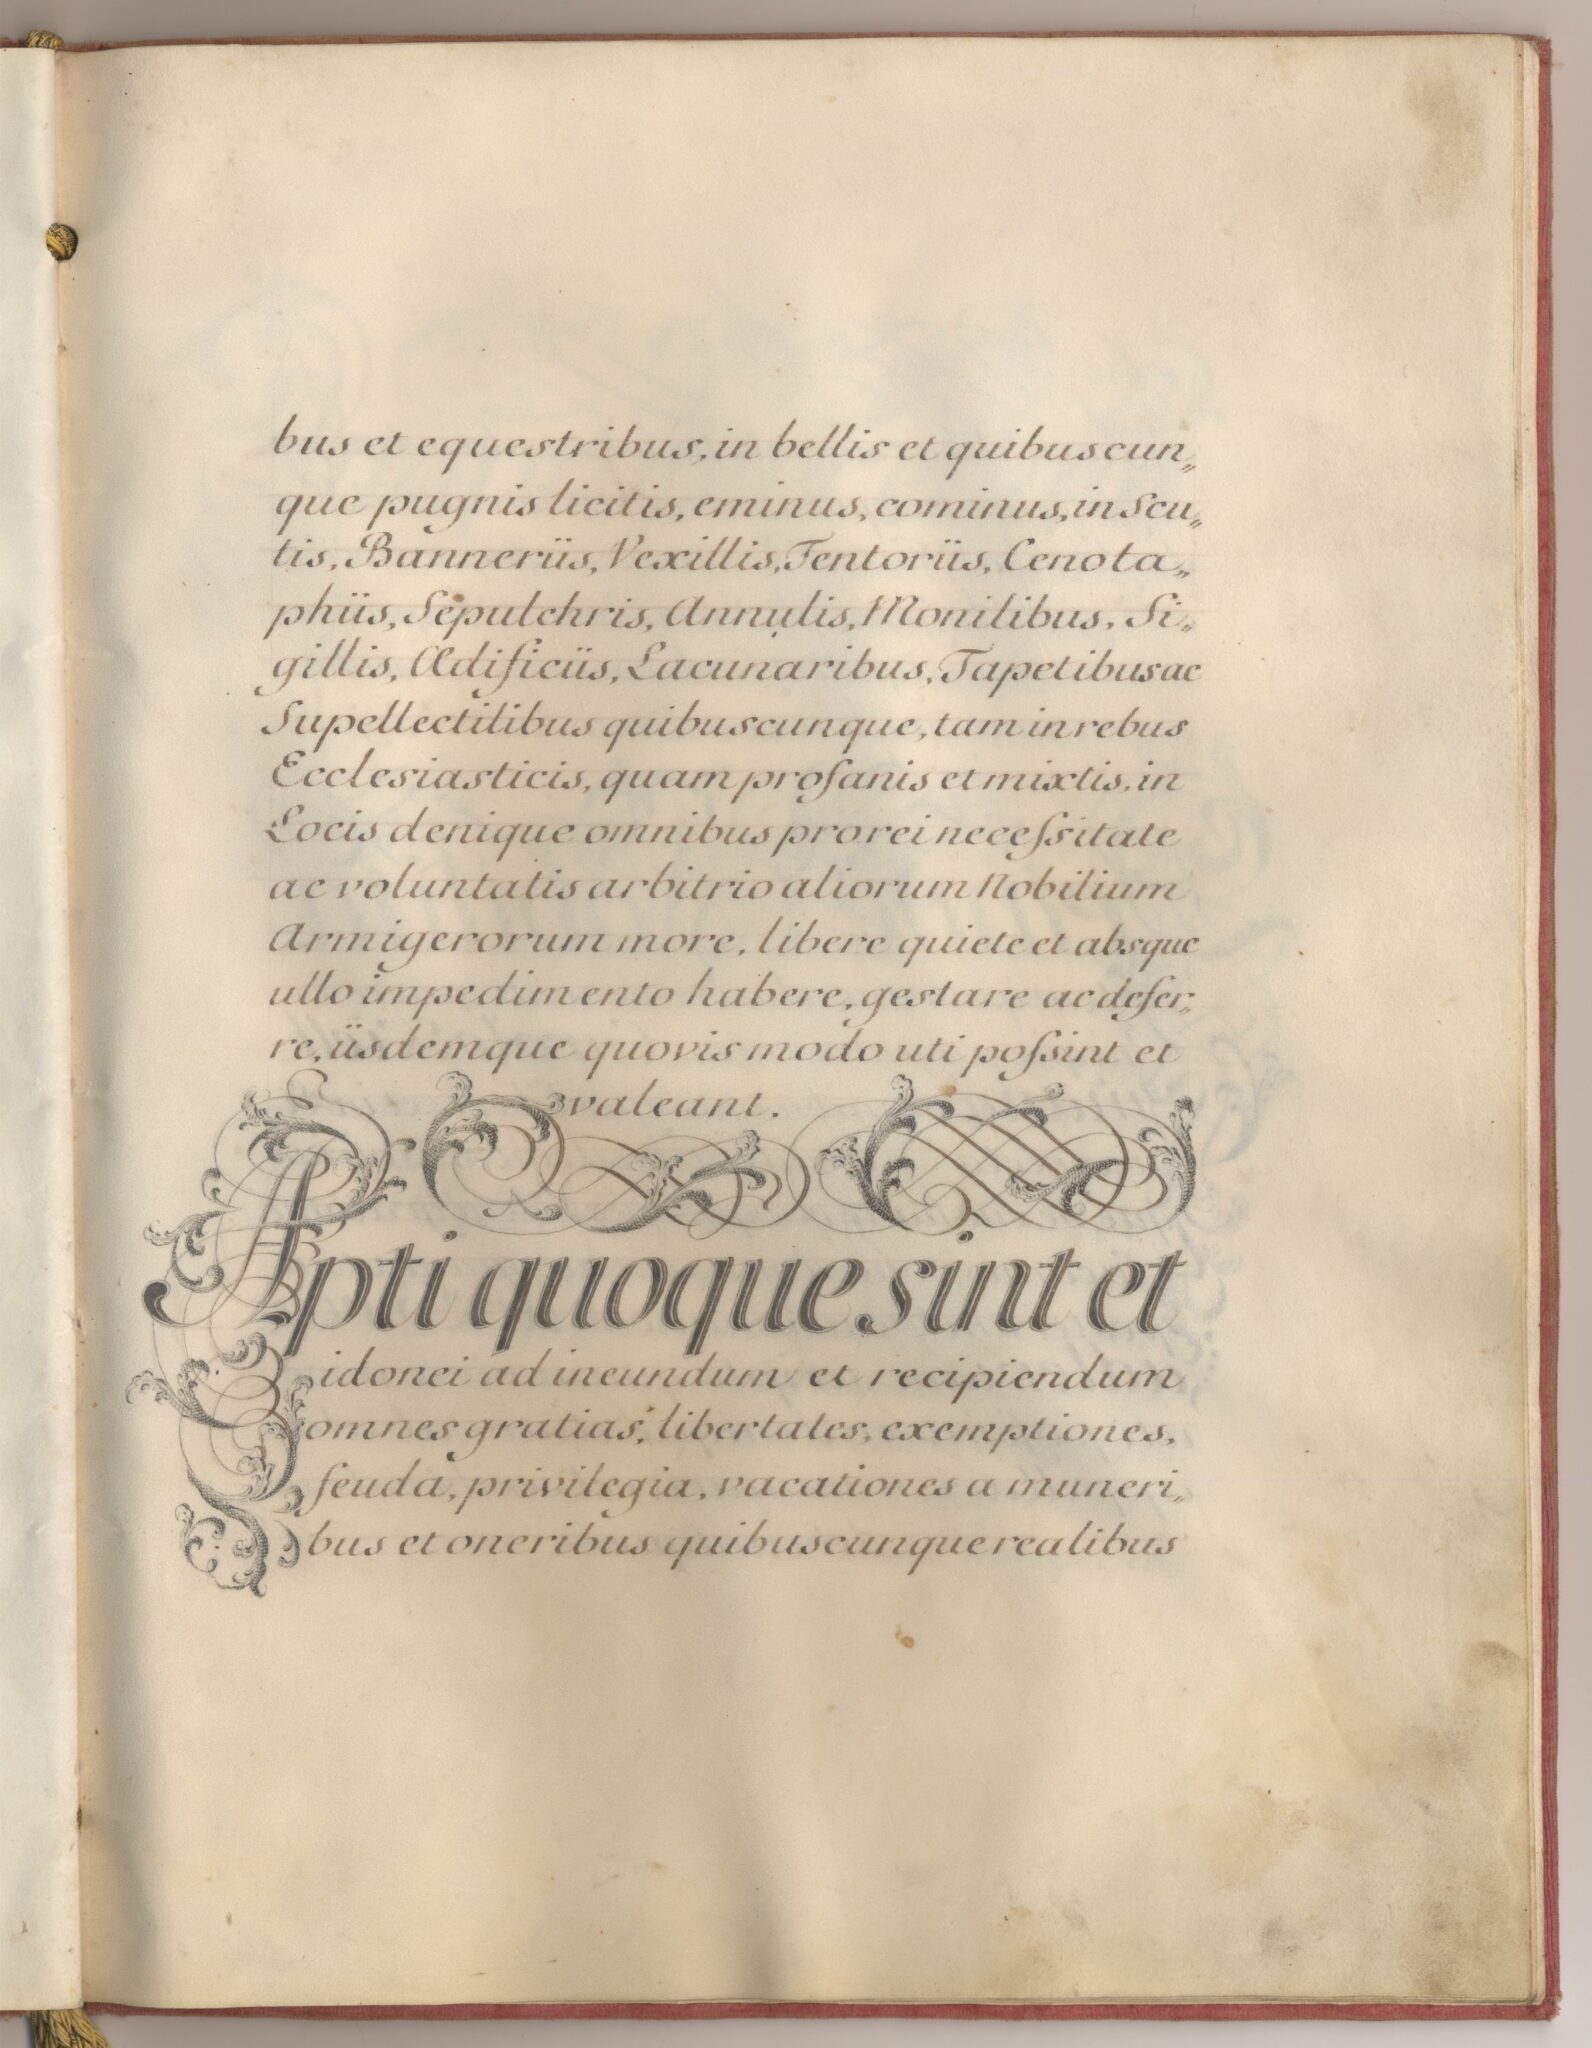 bus et equestribus, in bellis et quibuscun„
que pugnis licitis, eminus, cominus, in Scu„
tis, Banneriis, Vexillis, Tentoriis, Cenota„
phiis, Sepulchris, Annulis, Monilibus, Si„
gillis, Ædificiis, Lacunaribus, Tapetibus ac
Supellectilibus quibuscunque, tam in rebus
Ecclesiasticis, quam profanis et mixtis, in
Locis denique omnibus pro rei neceſsitate
ac voluntatis arbitrio aliorum Nobilium
Armigerorum more, libere quiete et absque
ullo impedimento habere, gestare ac defer„
re, iisdemque quovis modo uti poſsint et
valeant.
Apti quoque sint et
idonei ad ineundum et recipiendum
omnes gratias, libertates, exemptiones,
feuda, privilegia, vacationes a muneri„
bus et oneribus quibuscunque realibus